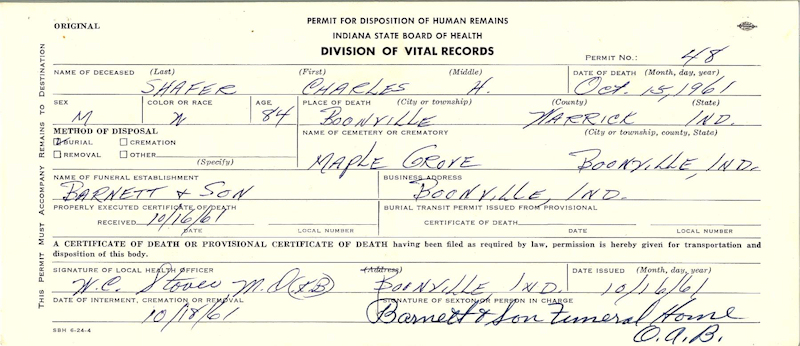 ORIGINAL
PERMIT FOR DISPOSITION OF HUMAN REMAINS
INDIANA STATE BOARD OF HEALTH
DIVISION OF VITAL RECORDS
PERMIT NO.: 48
THIS PERMIT MUST ACCOMPANY REMAINS TO DESTINATION
NAME OF DECEASED (Last) (First) (Middle) DATE OF DEATH (Month, day, year)
SHAFER CHARLES H. Oct. 15, 1961
SEX COLOR OR RACE AGE PLACE OF DEATH (City or township) (County) (State)
M W 84 BOONVILLE WARRICK IND.
METHOD OF DISPOSAL NAME OF CEMETERY OR CREMATORY (City or township, county, State)
BURIAL CREMATION
REMOVAL OTHER (Specify)
MAPLE GROVE BOONVILLE, IND.
NAME OF FUNERAL ESTABLISHMENT BUSINESS ADDRESS
BARNETT & SON BOONVILLE, IND.
PROPERLY EXECUTED CERTIFICATE OF DEATH BURIAL TRANSIT PERMIT ISSUED FROM PROVISIONAL
RECEIVED 10/16/61 CERTIFICATE OF DEATH
DATE LOCAL NUMBER DATE LOCAL NUMBER
A CERTIFICATE OF DEATH OR PROVISIONAL CERTIFICATE OF DEATH having been filed as required by law, permission is hereby given for transportation and
disposition of this body.
SIGNATURE OF LOCAL HEALTH OFFICER (Address) DATE ISSUED (Month, day, year)
W.C. Stover M.D. BOONVILLE, IND. 10/16/61
DATE OF INTERMENT, CREMATION OR REMOVAL SIGNATURE OF SEXTON OR PERSON IN CHARGE
10/18/61 Barnett & Son Funeral Home
O.A.B.
SBH 6-24-4